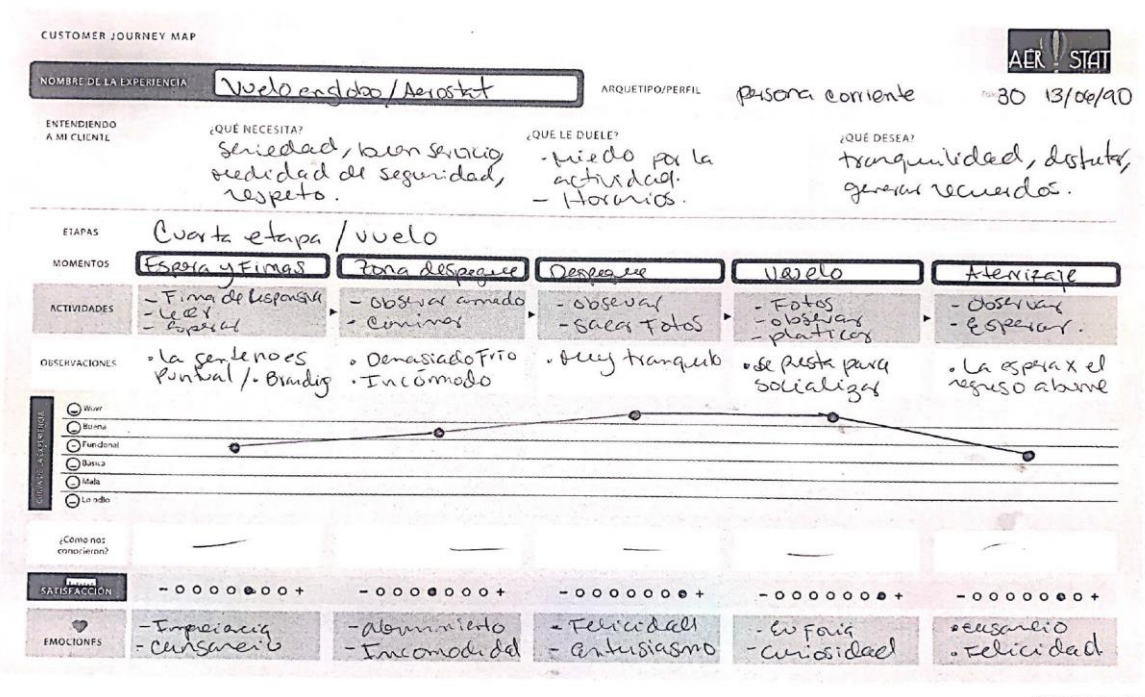 CUSTOMER JOURNEY MAP
AER STAT
NOMBRE DE LA EXPERIENCIA
Vuelo en globo / Aerostat
ARQUETIPO/PERFIL
persona corriente
30 13/06/90
ENTENDIENDO
A MI CLIENTE
¿QUÉ NECESITA?
Seriedad, buen servicio,
medidad de seguridad,
respeto.
¿QUE LE DUELE?
- Miedo por la
actividad.
- Horarios.
¿QUÉ DESEA?
tranquilidad, disfrutar,
generar recuerdos.
ETAPAS
Cuarta etapa / vuelo
MOMENTOS
Espera y Fimas
Zona despegue
Despegue
Vuelo
Aterrizaje
ACTIVIDADES
- Fima de Responsiva
- Leer
- Esperar
- Observar armado
- Caminar
- observar
- Sacar Fotos
- Fotos
- observar
- platicar
- Observar
- Esperar.
OBSERVACIONES
• la gente no es
puntual / • Brandig
• Demasiado Frío
• Incómodo
• Muy tranquilo
• se presta para
socializar
• La espera x el
regreso aburre
Wow
Buena
Funcional
Básica
Mala
Lo odio
¿Cómo nos
conocieron?
SATISFACCIÓN
EMOCIONES
- Impaciencia
- Cansancio
- Aburrimiento
- Incomodidad
- Felicidad
- Entusiasmo
- Euforia
- Curiosidad
• Cansancio
• Felicidad